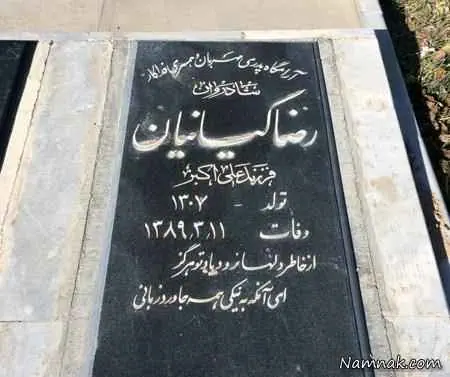 آرامگاه پدری مهربان و همسری فداکار
شادروان
رضا کیانیان
فرزند علی اکبر
تولد - ۱۳۰۷
وفات ۱۳۸۹٫۳٫۱۱
از خاطر دلها نرود یاد تو هرگز
ای آنکه به نیکی همه جا ورد زبانی
Namnak.com